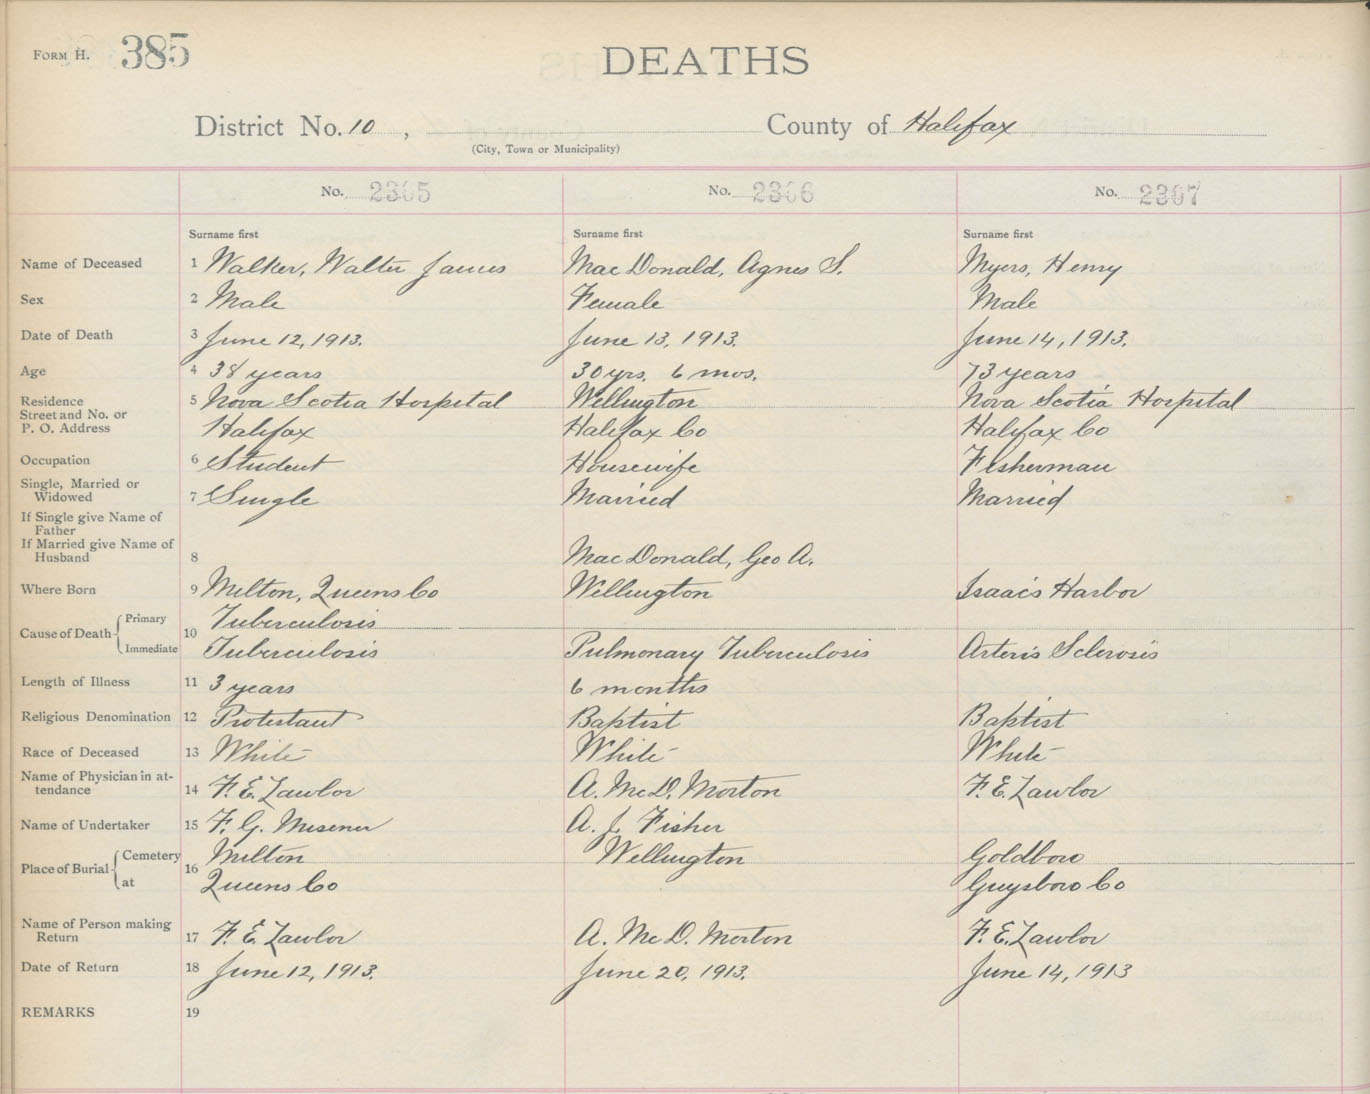 FORM H. 385
DEATHS
District No. 10 , County of Halifax
(City, Town or Municipality)
No. 2305 No. 2306 No. 2307
Surname first Surname first Surname first
Name of Deceased 1 Walker, Walter James MacDonald, Agnes S. Myers, Henry
Sex 2 Male Female Male
Date of Death 3 June 12, 1913. June 13, 1913. June 14, 1913.
Age 4 38 years 30 yrs. 6 mos. 73 years
Residence 5 Nova Scotia Hospital Wellington Nova Scotia Hospital
Street and No. or
P. O. Address Halifax Halifax Co Halifax Co
Occupation 6 Student Housewife Fisherman
Single, Married or
Widowed 7 Single Married Married
If Single give Name of
Father
If Married give Name of
Husband 8 MacDonald, Geo A.
Where Born 9 Milton, Queens Co Wellington Isaac's Harbor
Cause of Death 10 Primary Tuberculosis
Immediate Tuberculosis Pulmonary Tuberculosis Arterio Sclerosis
Length of Illness 11 3 years 6 months
Religious Denomination 12 Protestant Baptist Baptist
Race of Deceased 13 White White White
Name of Physician in at-
tendance 14 F. E. Lawlor A. McD. Morton F. E. Lawlor
Name of Undertaker 15 F. G. Misener A. J. Fisher
Place of Burial 16 Cemetery Milton Wellington Goldboro
at Queens Co Guysboro Co
Name of Person making
Return 17 F. E. Lawlor A. McD. Morton F. E. Lawlor
Date of Return 18 June 12, 1913. June 20, 1913. June 14, 1913
REMARKS 19